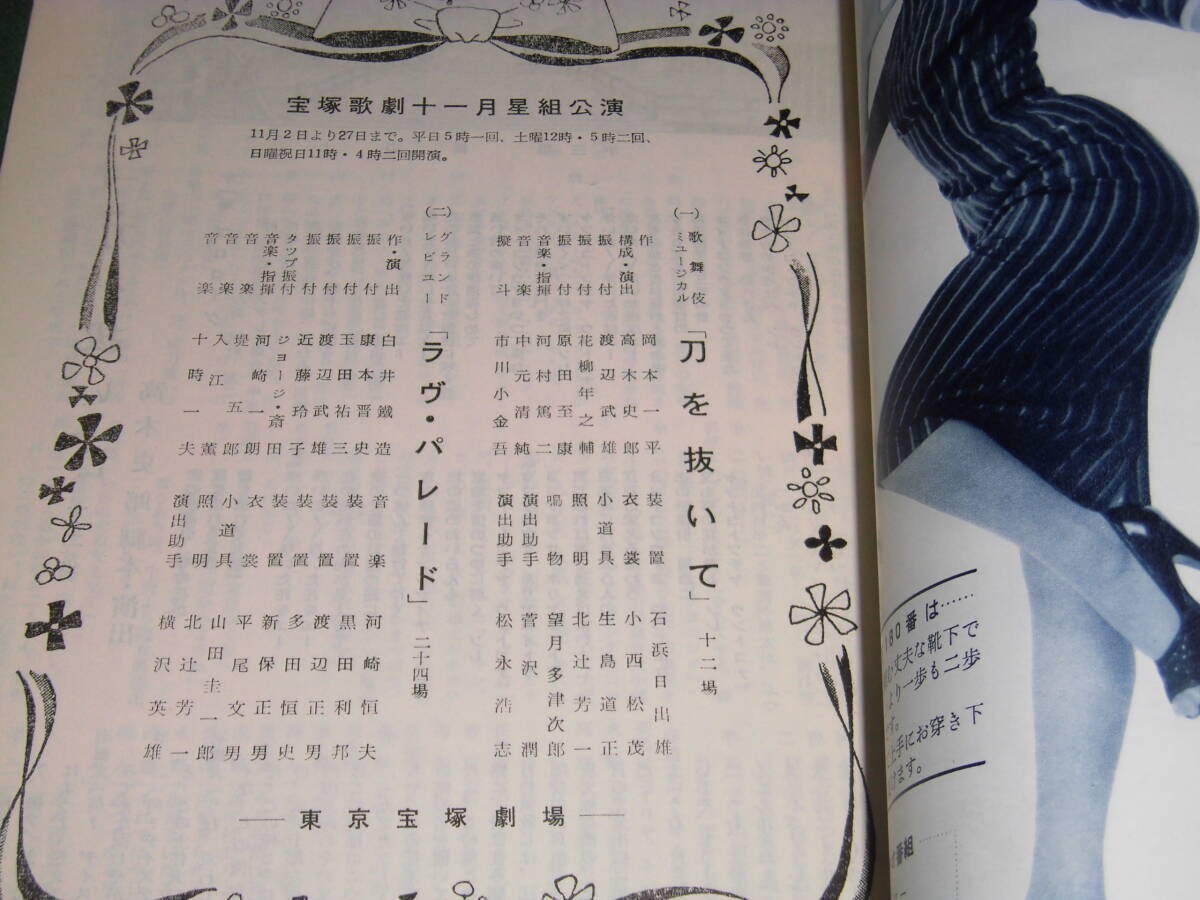 宝塚歌劇十一月星組公演
11月2日より27日まで。平日5時一回、土曜12時・5時二回、
日曜祝日11時・4時二回開演。
(一) 歌舞伎ミュージカル 「刀を抜いて」 十二場
作 岡本一平
構成・演出 高木史郎
振付 渡辺武雄
振付 花柳年之輔
振付 原田至康
音楽・指揮 河村篤二
音楽 中元清純
擬斗 市川小金吾
装置 石浜日出雄
衣裳 小西松茂
小道具 生島道正
照明 北辻芳一
鳴物 望月多津次郎
演出助手 菅沢潤
演出助手 松永浩志
(二) グランドレビユー 「ラヴ・パレード」 二十四場
作・演出 白井鐵造
振付 康本晋史
振付 玉田祐三
振付 渡辺武雄
振付 近藤玲子
タップ振付 ジョージ・斎田
音楽・指揮 河崎一朗
音楽 堤五郎
音楽 入江薫
音楽 十時一夫
音楽 河崎恒夫
装置 黒田利邦
装置 渡辺正男
装置 多田恒史
装置 新保正男
衣裳 平尾文男
小道具 山田圭一郎
照明 北辻芳一
演出助手 横沢英雄
── 東京宝塚劇場 ──
180番は……
丈夫な靴下で
より一歩も二歩
です。
上手にお穿き下
けます。
番組